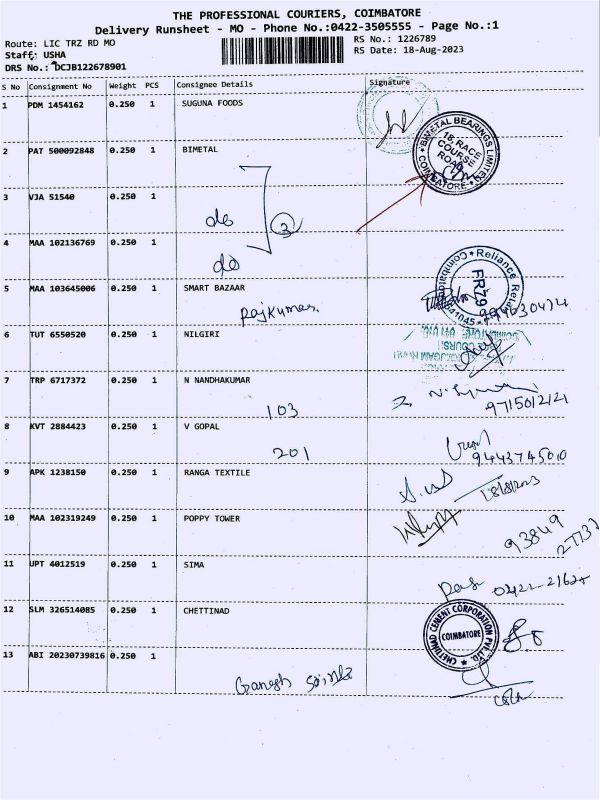 THE PROFESSIONAL COURIERS, COIMBATORE
Delivery Runsheet - MO - Phone No.:0422-3505555 - Page No.:1
Route: LIC TRZ RD MO
RS No.: 1226789
Staff: USHA
RS Date: 18-Aug-2023
DRS No.: DCJB122678901
S No Consignment No Weight PCS Consignee Details Signature
1 PDM 1454162 0.250 1 SUGUNA FOODS
2 PAT 500092848 0.250 1 BIMETAL
BIMETAL BEARINGS LIMITED
18, RACE
COURSE
ROAD
COIMBATORE
3 VJA 51540 0.250 1
do
3
4 MAA 102136769 0.250 1
do
5 MAA 103645006 0.250 1 SMART BAZAAR
Rajkumar
Reliance Retail
FR79
Coimbatore
641045
6 TUT 6550520 0.250 1 NILGIRI
7 TRP 6717372 0.250 1 N NANDHAKUMAR
103
9715012121
8 KVT 2884423 0.250 1 V GOPAL
201
9443745010
9 APK 1238150 0.250 1 RANGA TEXTILE
18/8/2023
10 MAA 102319249 0.250 1 POPPY TOWER
93849
27737
11 UPT 4012519 0.250 1 SIMA
12 SLM 326514085 0.250 1 CHETTINAD
CHETTINAD CEMENT CORPORATION PVT. LTD.
COIMBATORE
13 ABI 20230739816 0.250 1
Ganesh